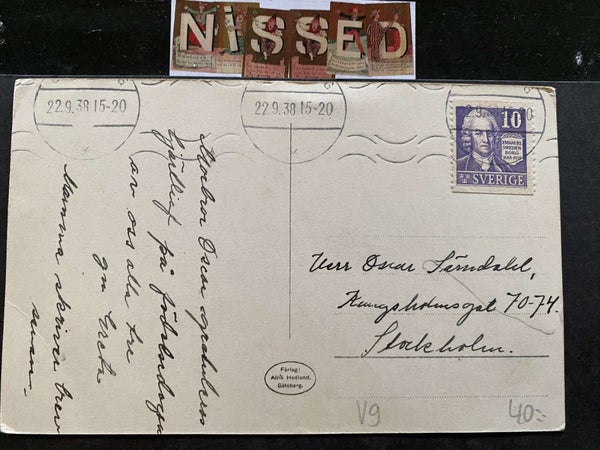 NiSSED
22.9.38 15-20
22.9.38 15-20
10
EMANUEL
SWEDEN
BORG
1688-1938
SVERIGE
Morbror Oscar gratuleras
hjärtligt på födelsedagen
av oss alla tre
gm Greta
Mamma skriver brev
senare.
Herr Oscar
Kungsholmsgat 70-74.
Stockholm.
Förlag:
Alrik Hedlund,
Göteborg.
V9
40:-